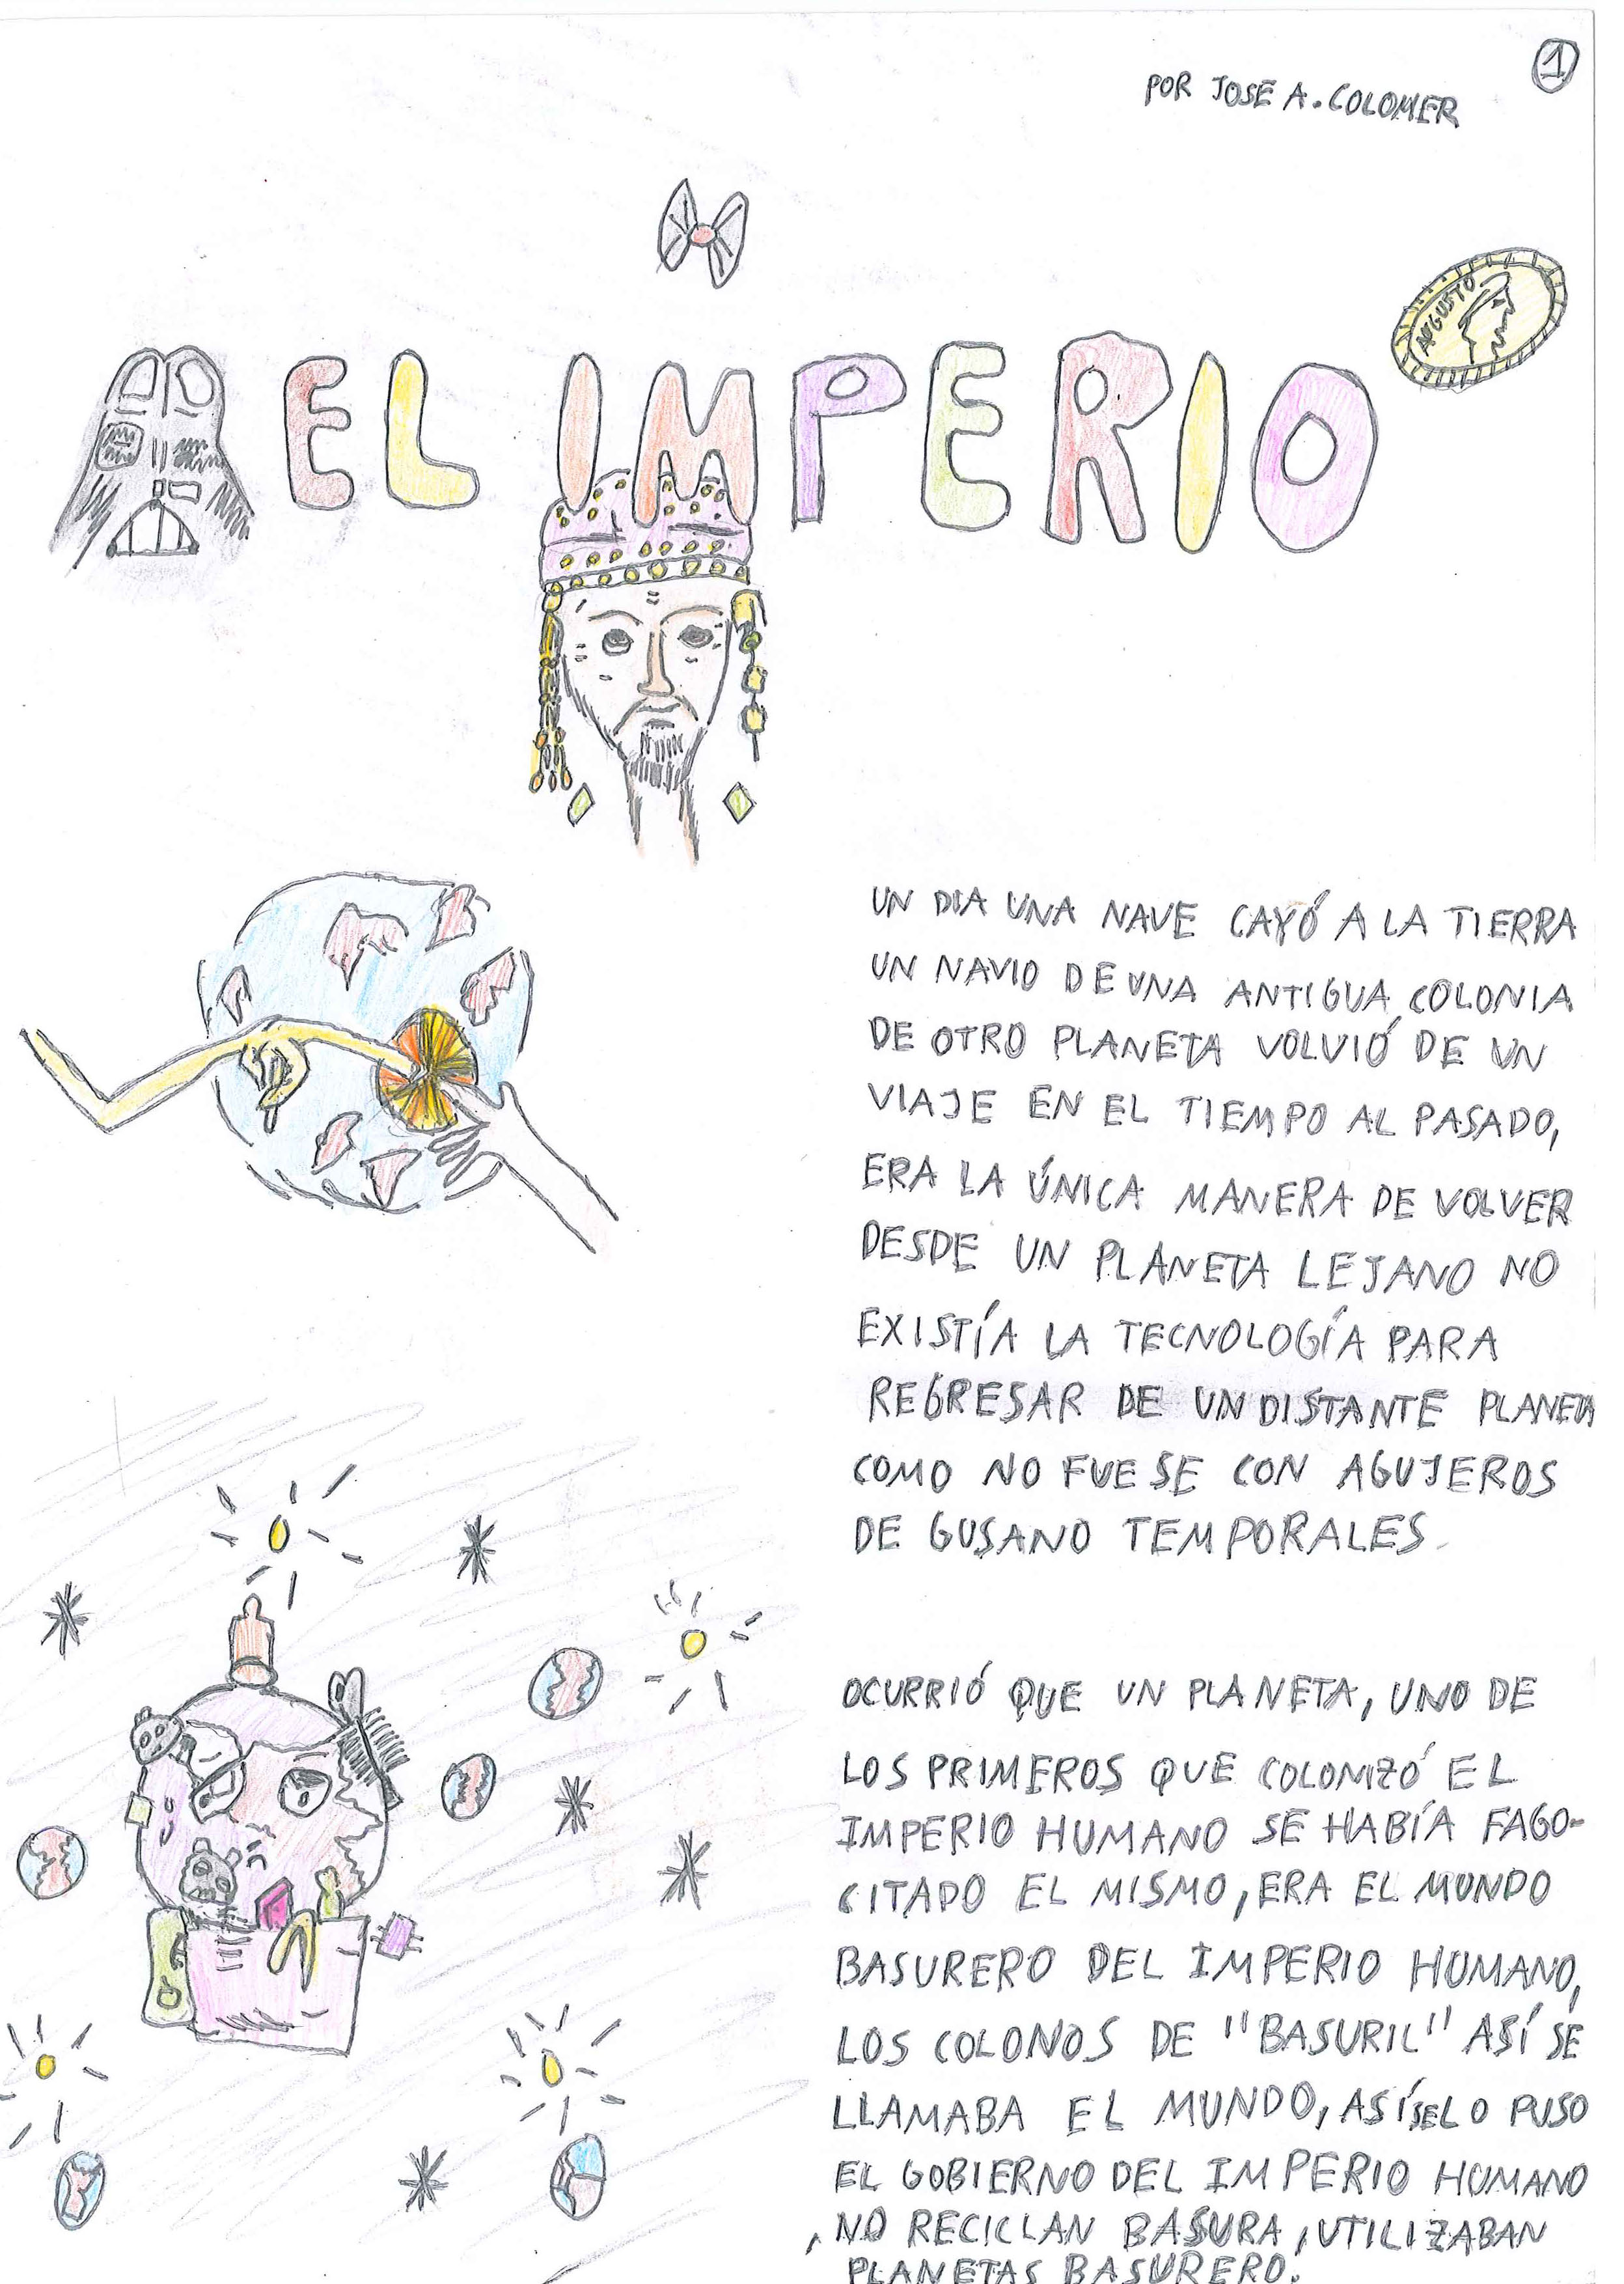 1
POR JOSE A. COLOMER
AUGUSTO
EL IMPERIO
UN DIA UNA NAVE CAYÓ A LA TIERRA
UN NAVIO DE UNA ANTIGUA COLONIA
DE OTRO PLANETA VOLVIÓ DE UN
VIAJE EN EL TIEMPO AL PASADO,
ERA LA ÚNICA MANERA DE VOLVER
DESDE UN PLANETA LEJANO NO
EXISTÍA LA TECNOLOGÍA PARA
REGRESAR DE UN DISTANTE PLANETA
COMO NO FUESE CON AGUJEROS
DE GUSANO TEMPORALES.
OCURRIÓ QUE UN PLANETA, UNO DE
LOS PRIMEROS QUE COLONIZÓ EL
IMPERIO HUMANO SE HABÍA FAGO-
CITADO EL MISMO, ERA EL MUNDO
BASURERO DEL IMPERIO HUMANO,
LOS COLONOS DE "BASURIL" ASÍ SE
LLAMABA EL MUNDO, ASÍ SE LO PUSO
EL GOBIERNO DEL IMPERIO HUMANO
, NO RECICLAN BASURA, UTILIZABAN
PLANETAS BASURERO.